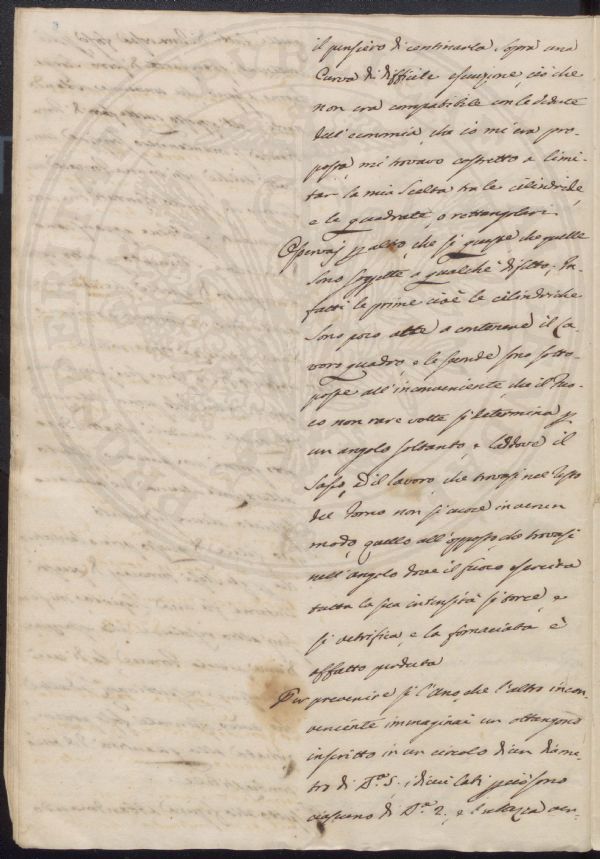 il pensiero di centinarla sopra una
Curva di difficile esecuzione, ciò che
non era compatibile con le vedute
dell'economia, che io mi era pro-
posta, mi trovavo costretto a limi-
tar la mia Scelta tra le cilindriche,
e le quadrate, o rettangolari.
Osservai p altro, che sì queste che quelle
sono soggette a qualche difetto; In-
fatti le prime cioè le cilindriche
sono poco atte a contenere il La-
voro quadro, e le seconde sono sotto-
poste all'inconveniente, che il Fuo-
co non rare volte si determina p
un angolo soltanto, e laddove il
Sasso, e il lavoro che trovasi nel resto
del Forno non si cuoce in verun
modo, quello all'opposto che trovasi
nell'angolo dove il fuoco esercita
tutta la sua intensità si torce, e
si vetrifica, e la fornaciata è
affatto perduta
Per prevenire sì l'uno, che l'altro incon-
veniente immaginai un ottangono
inscritto in un circolo di un diame-
tro di 5; i di cui lati p ciò sono
ciascuno di 2; e l'altezza ver-